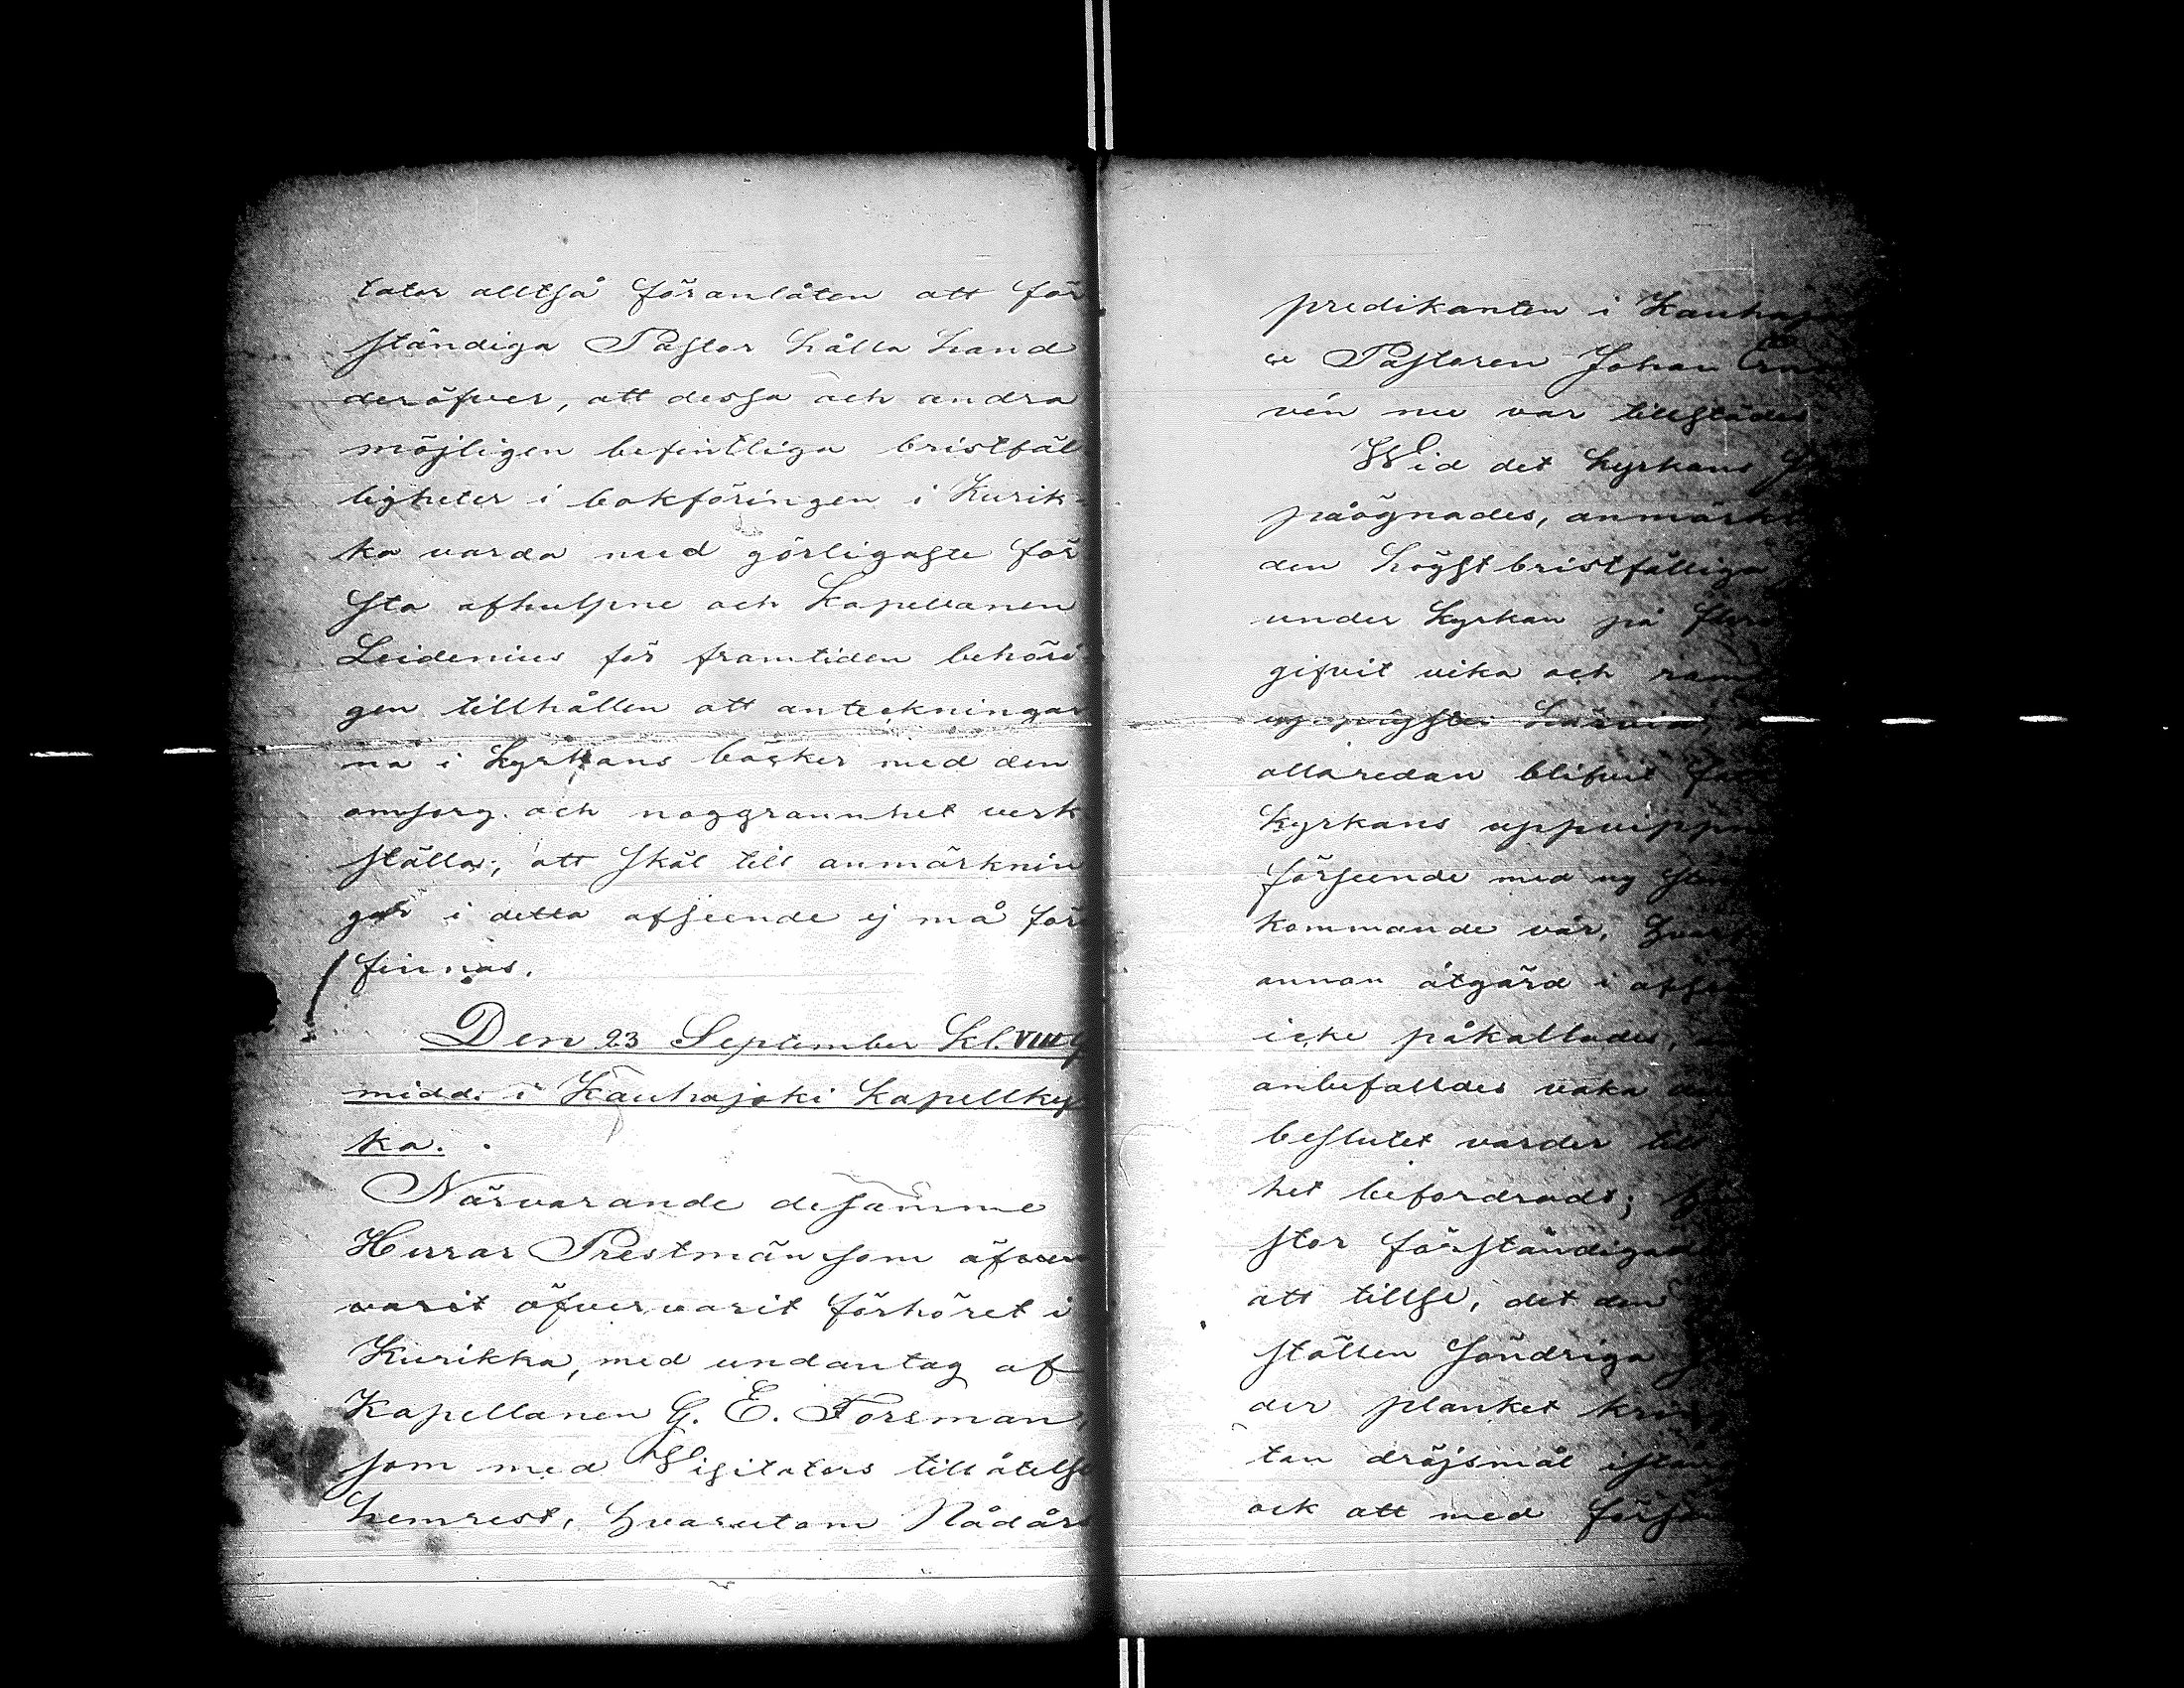 tator alltså föranlåten att för
ständiga Pastor hålla hand
deröfver, att dessa och andra
möjligen befintliga bristfäl
ligheter i bokföringen i Kurik-
ka varda med görligaste för
sta afhulpne och Kapellanen
Leidenius för framtiden behöri-
gen tillhållen att anteckningar
na i Kyrkans böcker med den
omsorg och noggrannhet verk
ställas, att skäl till anmärknin
gar i detta afseende ej må för
finnas.
Den 23 September Kl. VIII f
midd. i Kauhajoki Kapellky
ka.
Närvarande desamme
Herrar Prestmän som äfven
varit öfvervarit förhöret i
Kurikka, med undantag af
Kapellanen G. E. Forsman,
som med Visitators tillåtelse
hemrest, hvarutom Nådårs
predikanten i Kauhajo
Pastoren Johan
vén nu var tillstädes
Wid det Kyrkans
påögnades, anmärk
den högst bristfälliga
under Kyrkan på flera
gifvit vika och
allaredan blifvit
Kyrkans uppvipp
förseende med ny
kommande vår, hvar
annan åtgärd i afse
icke påkallades,
anbefalldes vaka
beslutet varder till
het befordradt;
stor förständigad
att tillse, det den
ställen söndriga
der planket kring
tan dröjsmål istånd
ock att med